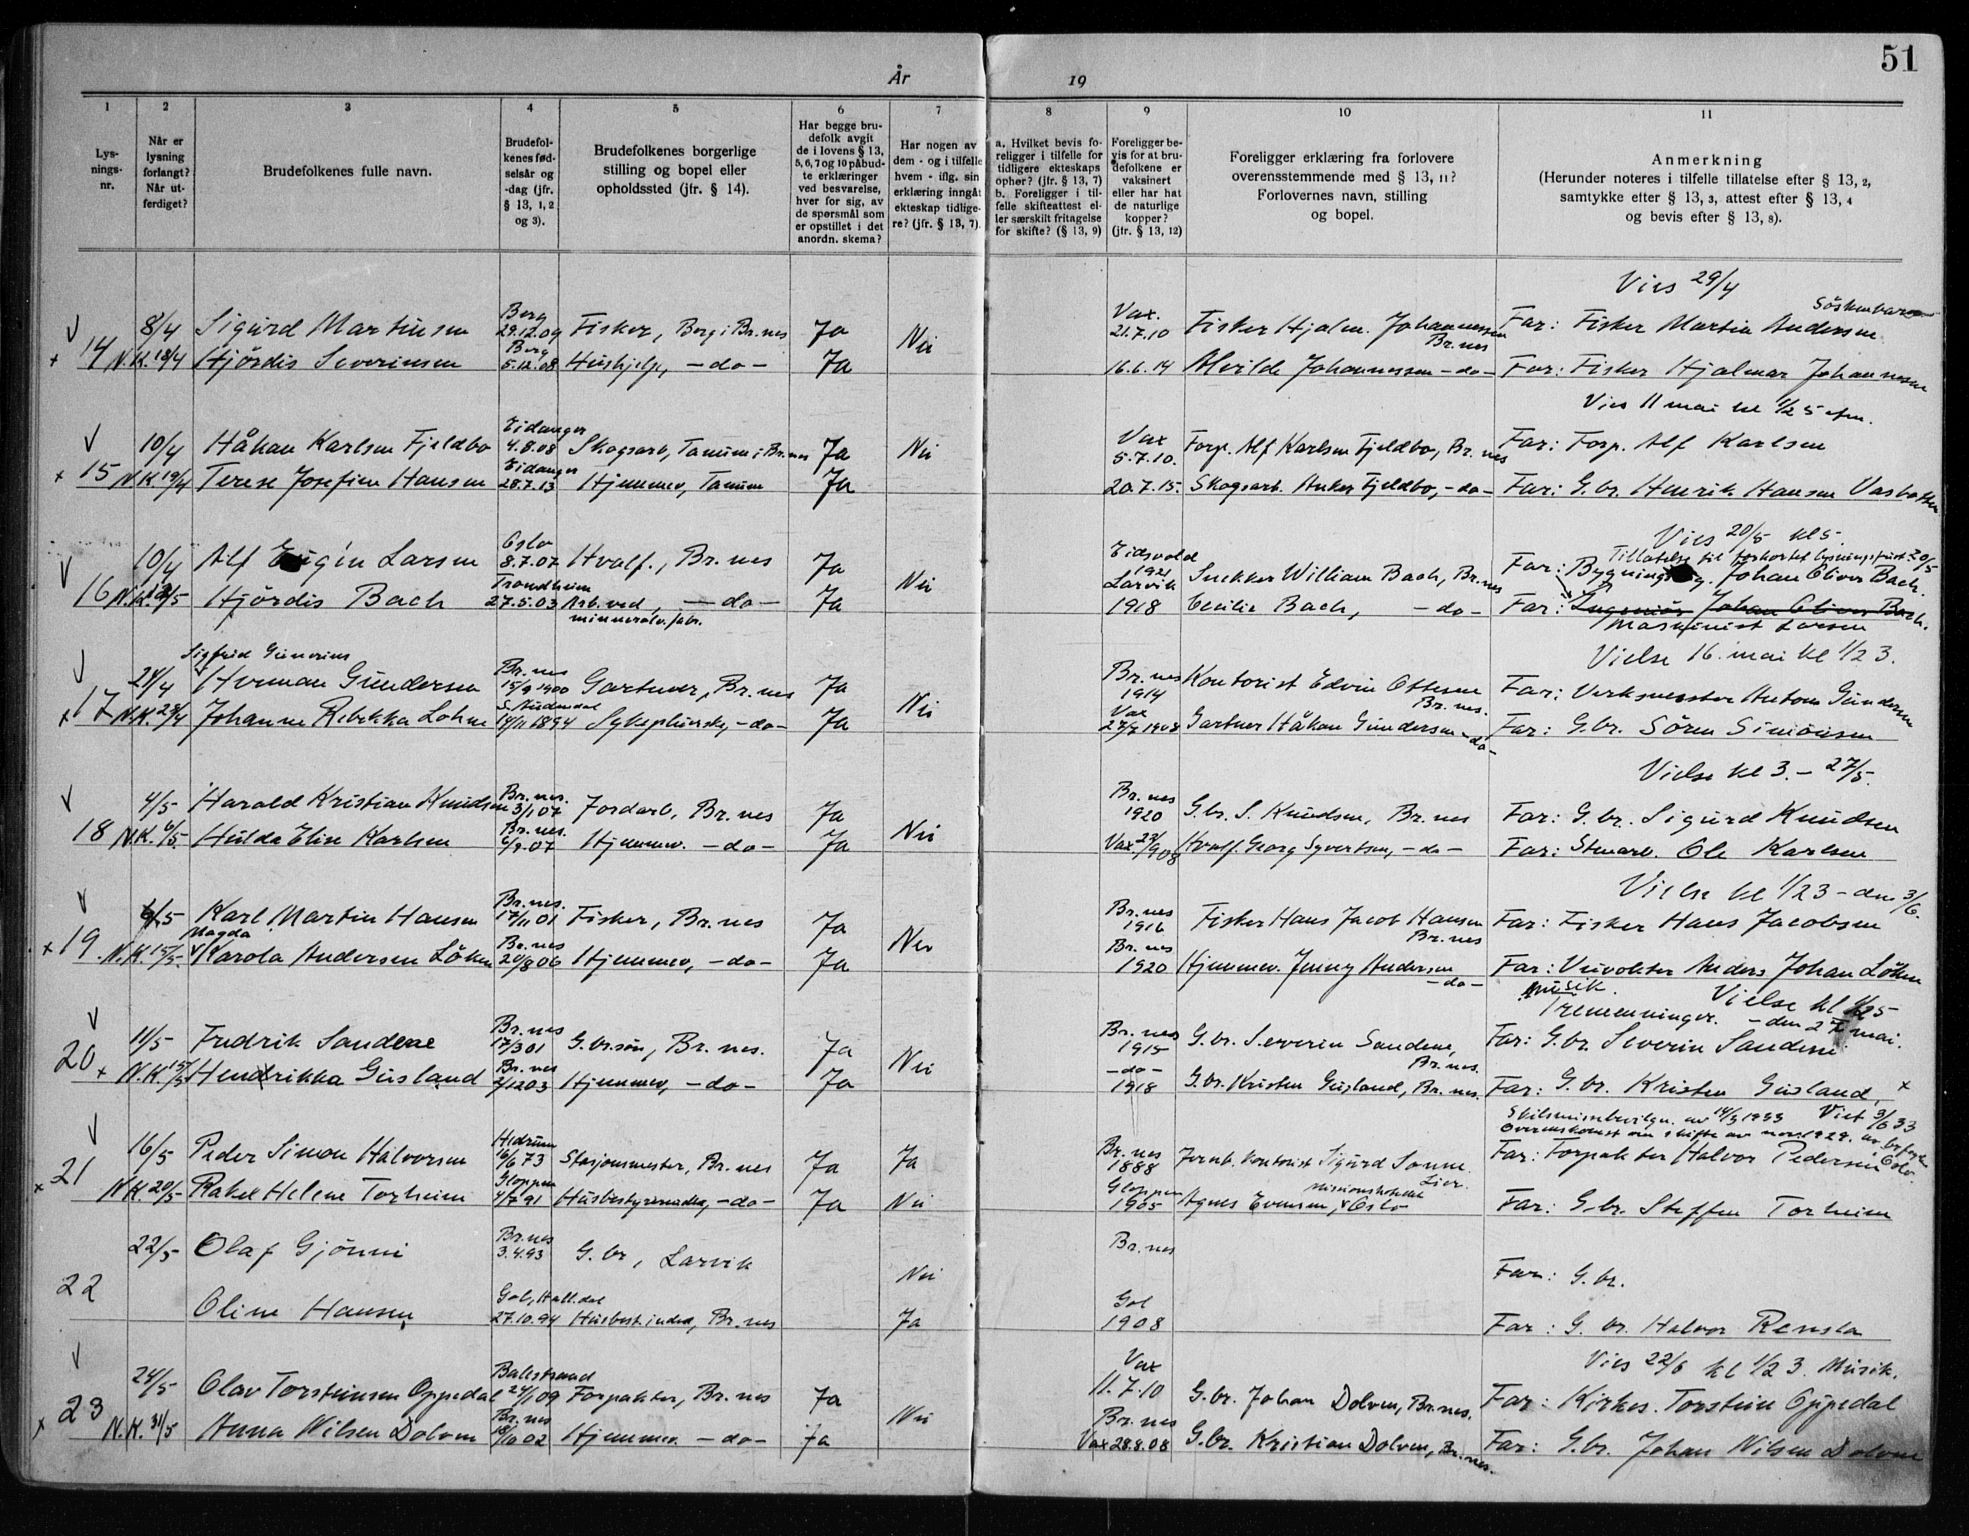 51
År
19
1
2
3
4
5
6
7
8
9
10
11
Lys-
nings-
nr.
Når er
lysning
forlangt?
Når ut-
ferdiget?
Brudefolkenes fulle navn.
Brudefol-
kenes fød-
selsår og
-dag (jfr.
§ 13, 1, 2
og 3).
Brudefolkenes borgerlige
stilling og bopel eller
opholdssted (jfr. § 14).
Har begge bru-
defolk avgit
de i lovens § 13,
5, 6, 7 og 10 påbud-
te erklæringer
ved besvarelse,
hver for sig, av
de spørsmål som
er opstillet i det
anordn. skema?
Har nogen av
dem - og i tilfelle
hvem - iflg. sin
erklæring inngåt
ekteskap tidlige-
re? (jfr. § 13, 7)
a. Hvilket bevis fo-
religger i tilfelle for
tidligere ekteskaps
ophør? (jfr. § 13, 7)
b. Foreligger i til-
felle skifteattest el-
ler særskilt fritagelse
for skifte? (§ 13, 9)
Foreligger be-
vis for at bru-
defolkene er
vaksinert
eller har hat
de naturlige
kopper?
(jfr. § 13, 12)
Foreligger erklæring fra forlovere
overensstemmende med § 13, 11?
Forlovernes navn, stilling
og bopel.
Anmerkning
(Herunder noteres i tilfelle tillatelse efter § 13, 2,
samtykke etter § 13, 3, attest efter § 13, 4
og bevis efter § 13, 8).
Vies 29/4
Søskenbarn
14 8/4 Sigurd Martinsen Berg 29.12.09 Fisker, Berg i Br.nes Ja Nei Vax. 21.7.10 Fisker Hjalm. Johannessen Br.nes Far: Fisker Martin Andersen
N.K. 18/4 Hjördis Severinsen Berg 5.12.08 Hushjelp, -do- Ja 16.6.14 Alvilde Johannessen -do- Far: Fisker Hjalmar Johannessen
Vies 11 mai kl 1/2 5 efm.
15 10/4 Håkon Karlsen Fjeldbo Eidanger 4.8.08 Skogsarb, Tanum i Br.nes Ja Nei Vax 5.7.10. Forp. Alf Karlsen Fjeldbo, Br.nes Far: Forp. Alf Karlsen
N.K. 19/4 Terese Josefine Hansen Eidanger 28.7.13 Hjemmev, Tanum Ja 20.7.15. Skogsarb. Anker Fjeldbo, -do- Far: G.br. Henrik Hansen Vasbotten
Vies 20/5 kl 5.
Tillatelse til forkortet lysningsfrist 20/5
16 10/4 Alf Eugén Larsen Oslo 8.7.07 Hvalf., Br.nes Ja Nei Eidsvold 1921 Snekker William Bach, Br.nes Far: Johan Oliver Bach.
N.K. Hjördis Bach Trondheim 27.5.03 Arb.ved mineralv. fabr. -do- Ja Larvik 1918 Cecilie Bach, -do- Far: Ingeniör Johan Oliver Bach.
Maskinist Larsen
Vielse 16. mai kl 1/2 3.
Sigfrid Gunerius
17 24/4 Herman Gundersen Br.nes 15/9 1900 Gartner, Br.nes Ja Nei Br.nes 1914 Kontorist Edvin Ottesen Br.nes. Far: Verksmester Anton Gundersen
N.K. 29/4 Johanne Rebekka Lohne S. Audnedal 14/11 1894 Sykepleierske, -do- Ja Vax 27/7 1908 Gartner Håkon Gundersen -do- Far: G.br. Sören Simonsen
Vielse kl 3. - 27/5.
18 4/5 Harald Kristian Knudsen Br.nes. 3/1 07 Jordarb, Br.nes Ja Nei Br.nes 1920 G.br. S. Knudsen, Br.nes Far: G.br. Sigurd Knudsen
N.K. 6/5. Hulda Elise Karlsen Br.nes. 6/9.07 Hjemmev. -do- Ja Vax 23/9 08 Hvalf. Georg Syvertsen, -do- Far: Stenarb. Ole Karlsen
Vielse kl 1/2 3 - den 3/6.
19 6/5 Karl Martin Hansen Br.nes. 17/11 01 Fisker, Br.nes Ja Nei Br.nes 1916 Fisker Hans Jacob Hansen Br.nes Far: Fisker Hans Jacobsen
Magda
N.K. 15/5. Karola Andersen Löken Br.nes 20/8 06 Hjemmev, -do- Ja Br.nes 1920 Hjemmev. Jenny Andersen -do- Far: Anders Johan Löken
Musik. Vielse kl 1/2 5
Tremenninger. - den 27 mai.
20 11/5 Fredrik Sandene Br.nes 17/3 01 G.br.søn, Br.nes. Ja Nei Br.nes 1915 G.br. Severin Sandene, Br.nes. Far: G.br. Severin Sandene
N.K. 15/5 Hendrikka Gusland Br.nes 2/12 03 Hjemmev, -do- Ja -do- 1918 G.br. Kristen Gusland, Br.nes. Far: G.br. Kristen Gusland,
Skilsmissebevilgn. av 14/3 1933 Viet 3/6 33
Overenskomst om skifte av nov. 1929. av byfogden i Oslo.
21 16/5 Peder Simon Halvorsen Hedrum 16/6 73 Stasjonsmester, Br.nes Ja Ja Br.nes 1888 Jernb. kontorist Sigurd Sonne. Lier. Far: Forpakter Halvor Pedersen
N.K. 20/5. Rakel Helene Torheim Gloppen 4/7 91 Husbestyrerinde, -do- Ja Nei Gloppen 1905 Agnes Evensen, Missionshotellet Oslo Far: G.br. Steffen Torheim
22 22/5 Olaf Gjönni Br.nes 3.4.93 G.br, Larvik Nei Br.nes Far: G.br.
Oline Hansen Gol, Hall.dal 27.10.94 Husbest.inde, Br.nes Ja Gol 1908 Far: G.br. Halvor Rensla
Vies 22/6 kl 1/2 3. Musik.
23 24/5 Olav Torsteinsen Oppedal Balestrand 24/1 09 Forpakter, Br.nes Ja Nei Vax 11.7.10 G.br. Johan Dolven, Br.nes. Far: Kirkes. Torstein Oppedal
N.K. 31/5 Anna Nilsen Dolven Br.nes 18/10 02 Hjemmev. -do- Ja Br.nes Vax 28.8.08 G.br. Kristian Dolven, Br.nes. Far: G.br. Johan Nilsen Dolven